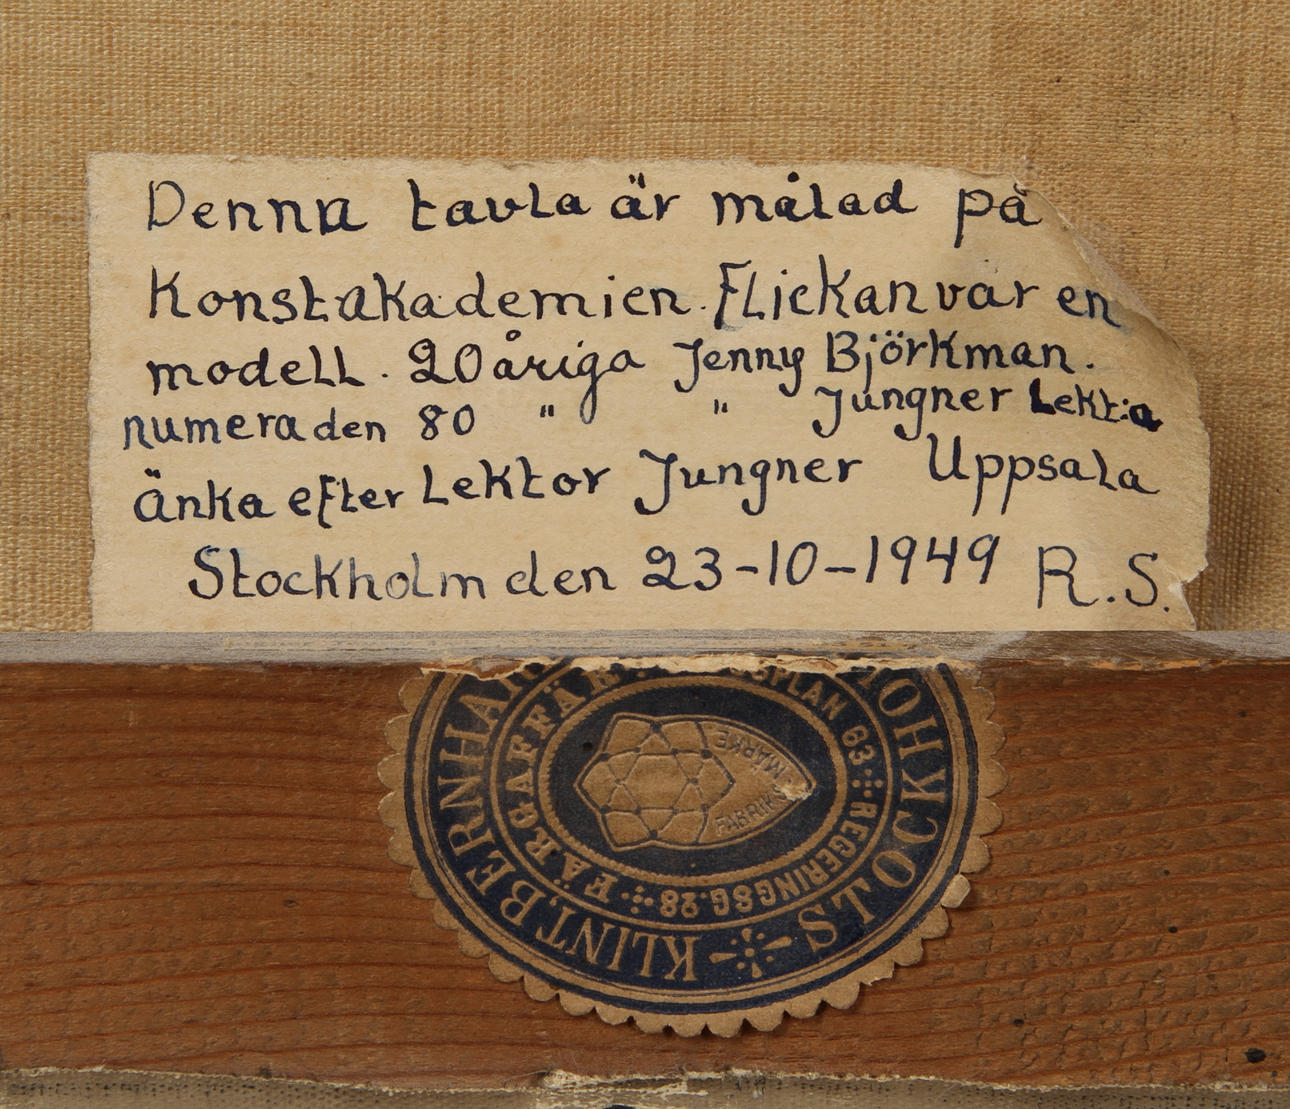 Denna tavla är målad på
Konstakademien. Flickan var en
modell. 20 åriga Jenny Björkman.
numera den 80 " " Jungner Lekt:a
änka efter Lektor Jungner Uppsala
Stockholm den 23-10-1949 R.S.
KLINT, BERNHAR
STOCKHO
FÄRGAFFÄR
SPLAN 63
REGERINGSG. 28
FABRIKS MÄRKE